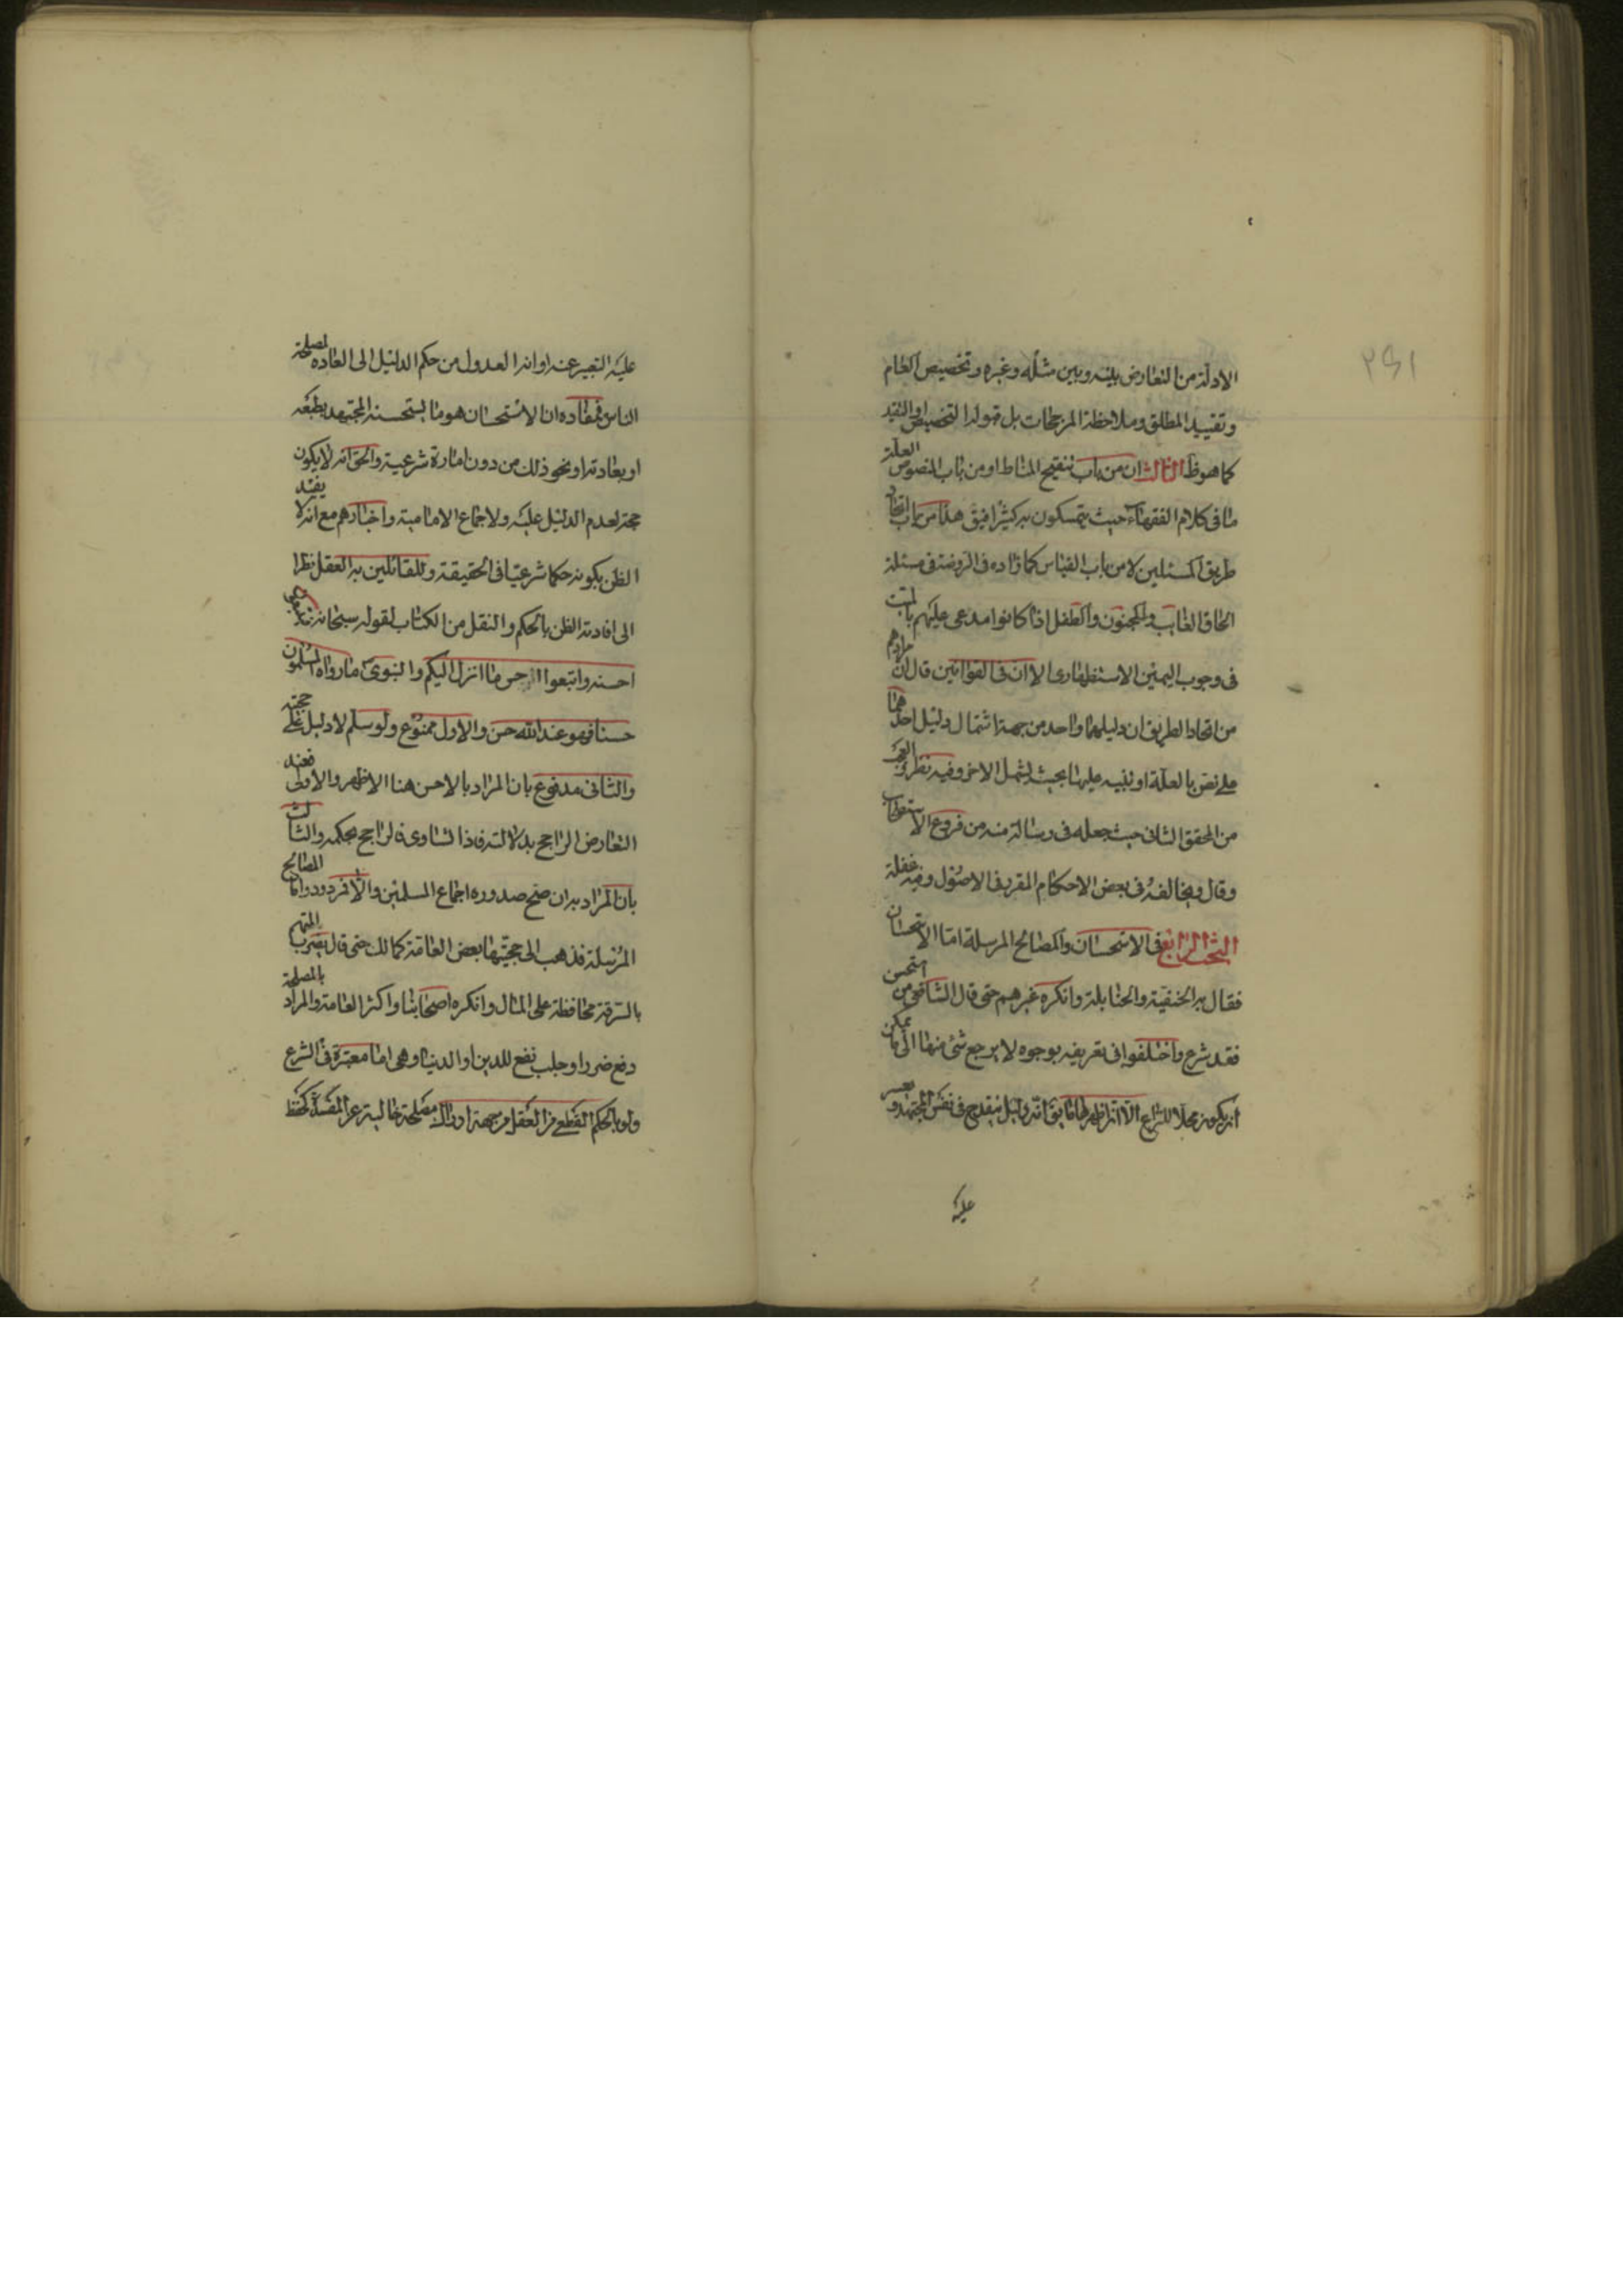 الادلة من التعارض بينه وبين مثله وغيره وتخصيص العام
وتقييد المطلق وملاحظة المرجحات بل قبوله التخصيص او التقييد
كما هو ظ الثالث ان من باب تنقيح المناط او من باب المنصوص العلة
ما فى كلام الفقهاء حيث يتمسكون به كثيرا فيق هذا من باب اتحاد
طريق المسئلين لا من باب القياس كما زاده فى الروضة فى مسئلة
الحاق الغائب والمجنون والطفل اذا كانوا مدعى عليهم بالميت
فى وجوب اليمين الاستظهارى الا ان فى القوانين قال ان مرادهم
من اتحاد الطريق ان دليلهما واحد من جهة اشتمال دليل احدهما
على نص بالعلة او تنبيه عليها بحيث يشمل الاخر وفيه نظر والعجب
من المحقق الثانى حيث جعله فى رسالة منه من فروع الاستصحاب
وقال ويخالفه فى بعض الاحكام المقرر فى الاصول وفيه غفلة
البحث الرابع فى الاستحسان والمصالح المرسلة اما الاستحسان
فقال به الحنفية والحنابلة وانكره غيرهم حتى قال الشافعى من استحسن
فقد شرع واختلفوا فى تعريفه بوجوه لا يرجع شئ منها الى ما يمكن
ان يكون محلا للنزاع الا انه اظهرها ما يق انه دليل ينقدح فى نفس المجتهد ويعسر
عليه
عليه التعبير عنه او انه العدول من حكم الدليل الى العاده لمصلحة
الناس فمفاده ان الاستحسان هو ما يستحسنه المجتهد بطبعه
او بعادته او نحو ذلك من دون امارة شرعية والحق انه لا يكون
حجة لعدم الدليل عليه ولاجماع الامامية واخبارهم مع انه لا يفيد
الظن بكونه حكما شرعيا فى الحقيقة وللقائلين به العقل نظرا
الى افادته الظن بالحكم والنقل من الكتاب لقوله سبحانه فيتبعون
احسنه واتبعوا احسن ما انزل اليكم والنبوى ما رواه المسلمون
حسنا فهو عند الله حسن والاول ممنوع ولو سلم لا دليل على حجيته
والثانى مدفوع بان المراد بالاحسن هنا الاظهر والاولى فعند
التعارض الراجح بدلالته فاذا تساوى فالراجح بحكمه والثالث
بان المراد به ان صح صدوره اجماع المسلمين والا فمردود واما المصالح
المرسلة فذهب الى حجيتها بعض العامة كمالك حتى قال بضرب المتهم
بالسرقة محافظة على المال وانكره اصحابنا واكثر العامة والمراد بالمصلحة
دفع ضرر او جلب نفع للدين او الدنيا وهى اما معتبرة فى الشرع
ولو بالحكم القطعى من العقل من جهة ادراك مصلحة خالية عن المفسدة كحفظ